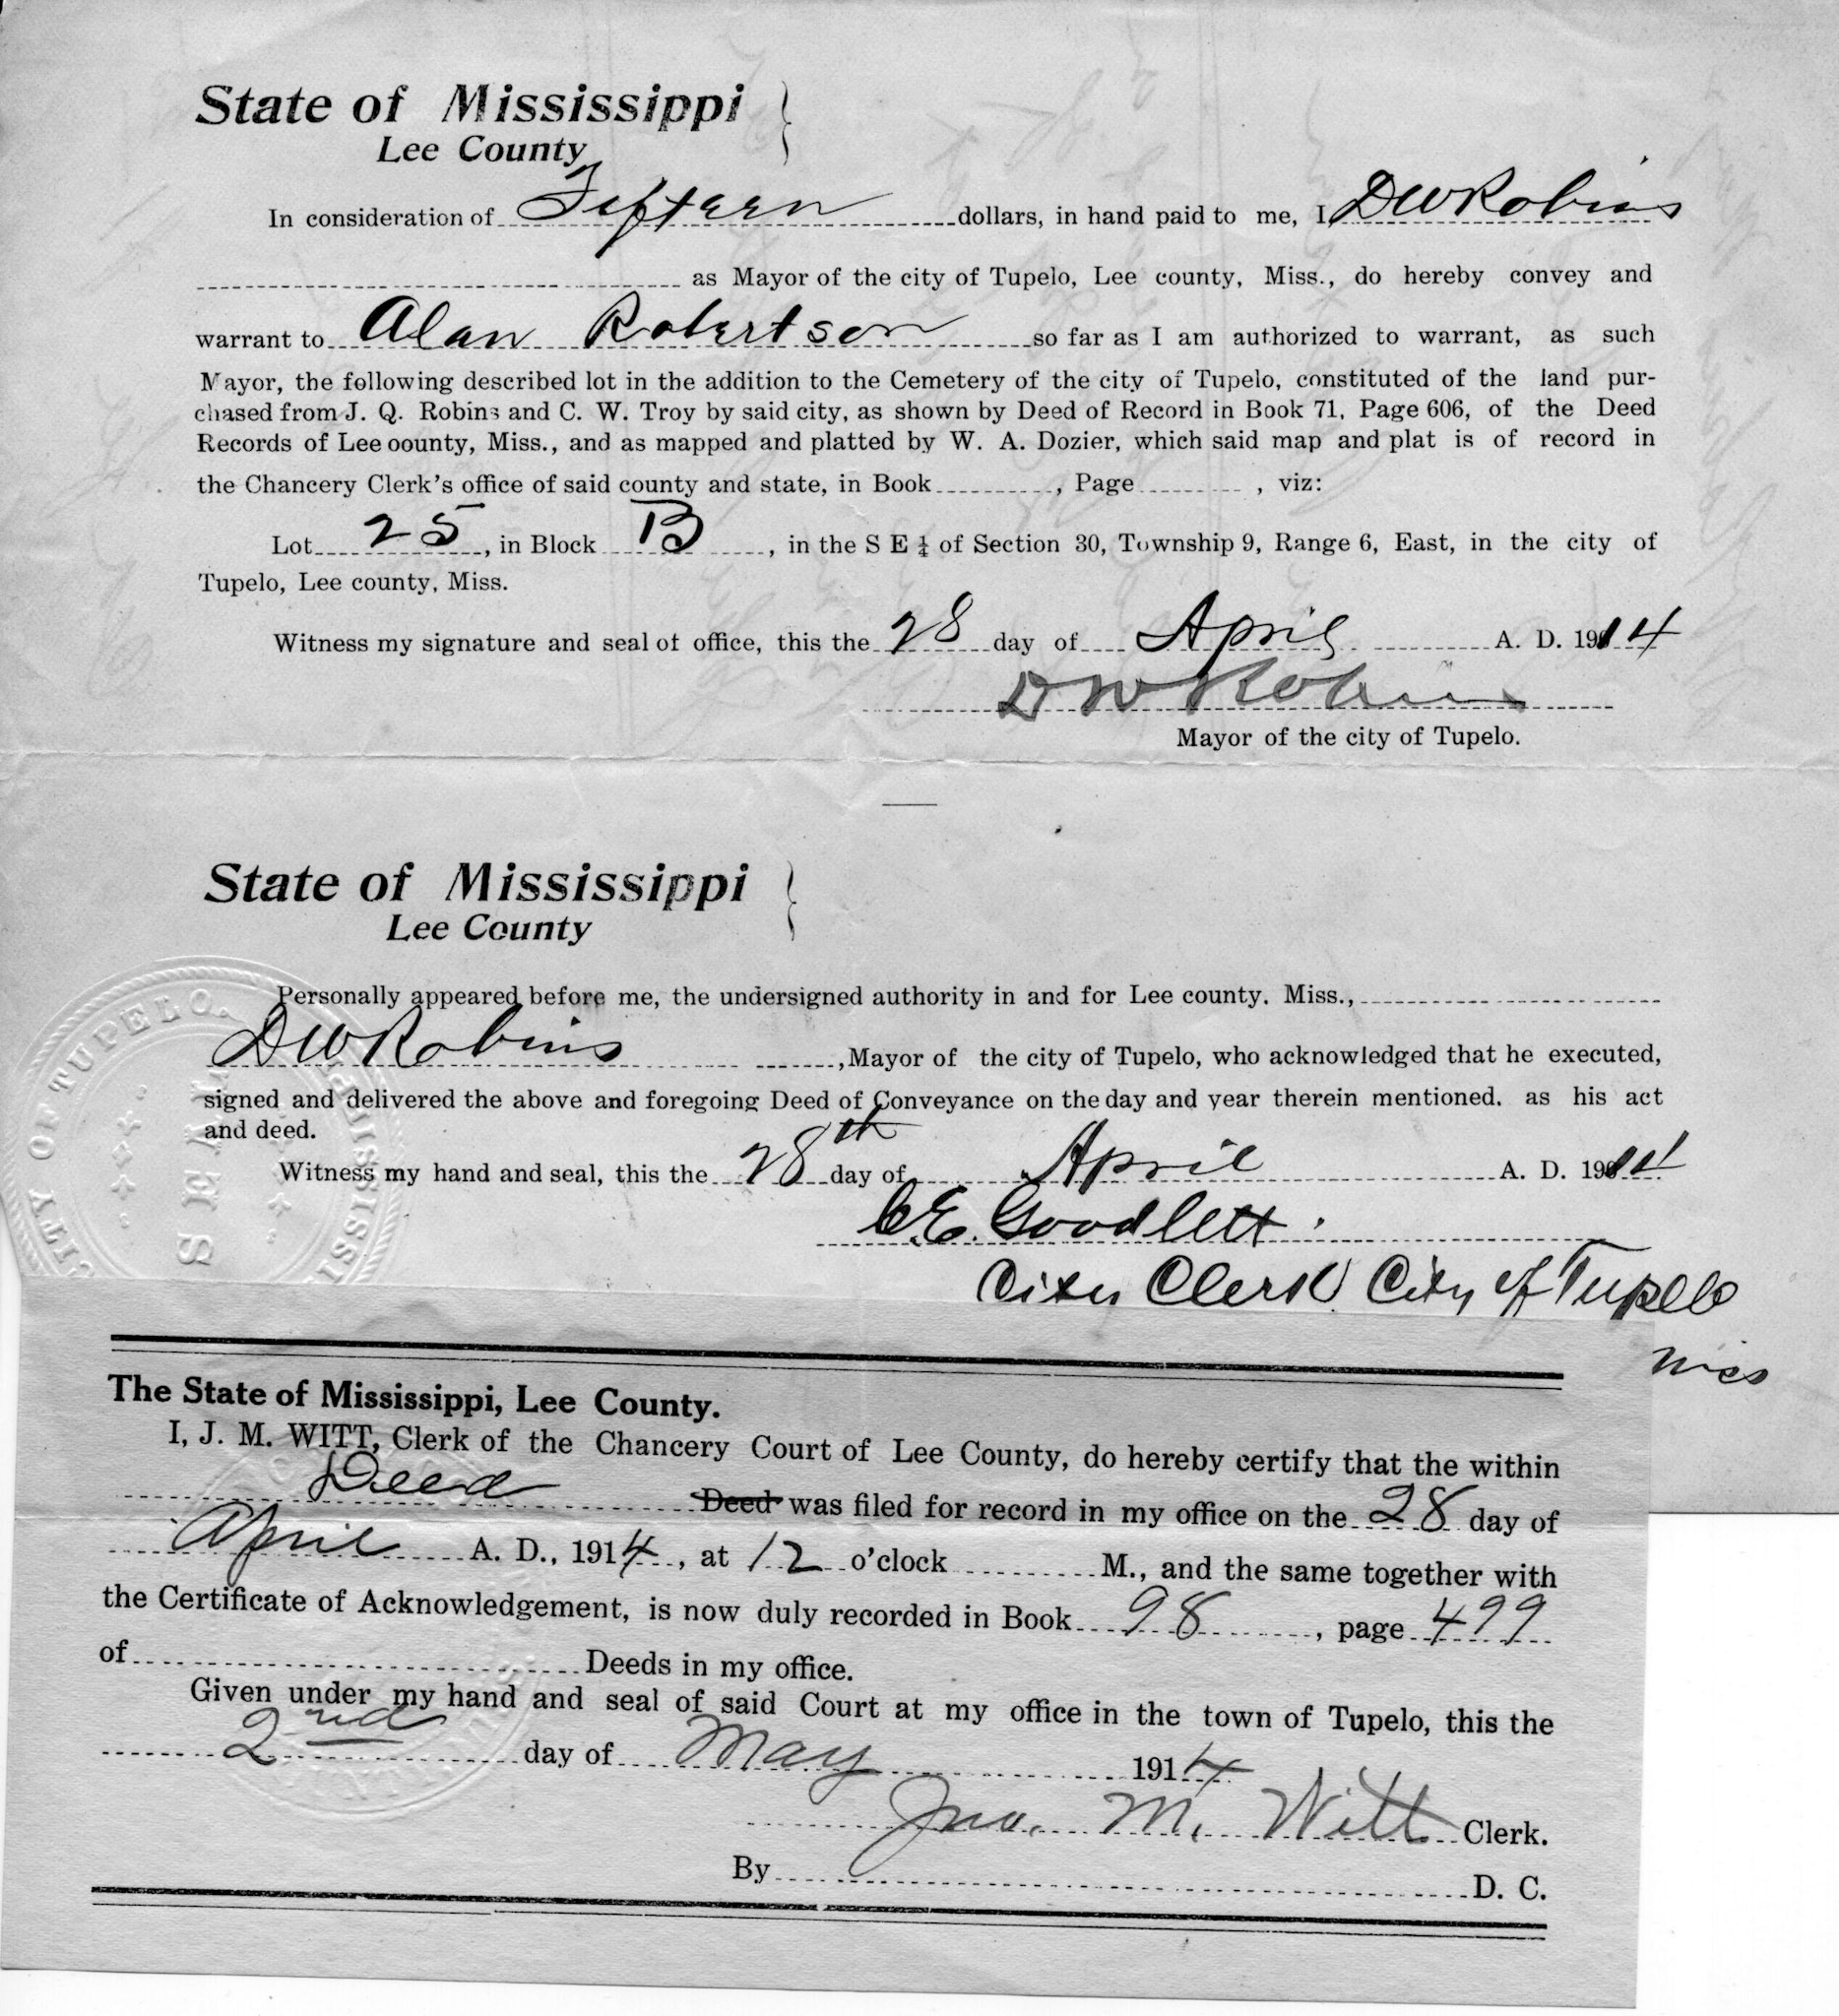 State of Mississippi }
Lee County
In consideration of Fifteen dollars, in hand paid to me, I, DW Robins
as Mayor of the city of Tupelo, Lee county, Miss., do hereby convey and
warrant to Alan Robertson so far as I am authorized to warrant, as such
Mayor, the following described lot in the addition to the Cemetery of the city of Tupelo, constituted of the land pur-
chased from J. Q. Robins and C. W. Troy by said city, as shown by Deed of Record in Book 71, Page 606, of the Deed
Records of Lee oounty, Miss., and as mapped and platted by W. A. Dozier, which said map and plat is of record in
the Chancery Clerk's office of said county and state, in Book , Page , viz:
Lot 25, in Block B, in the S E ¼ of Section 30, Township 9, Range 6, East, in the city of
Tupelo, Lee county, Miss.
Witness my signature and seal of office, this the 28 day of April A. D. 1914
DW Robins
Mayor of the city of Tupelo.
State of Mississippi }
Lee County
Personally appeared before me, the undersigned authority in and for Lee county. Miss.,
DW Robins, Mayor of the city of Tupelo, who acknowledged that he executed,
signed and delivered the above and foregoing Deed of Conveyance on the day and year therein mentioned. as his act
and deed.
Witness my hand and seal, this the 28th day of April A. D. 1914
C.E. Goodlett.
City Clerk City of Tupelo
Miss
CITY OF TUPELO. MISSISSIPPI
SEAL
The State of Mississippi, Lee County.
I, J. M. WITT, Clerk of the Chancery Court of Lee County, do hereby certify that the within
Deed Deed was filed for record in my office on the 28 day of
April A. D., 1914, at 12 o'clock M., and the same together with
the Certificate of Acknowledgement, is now duly recorded in Book 98, page 499
of Deeds in my office.
Given under my hand and seal of said Court at my office in the town of Tupelo, this the
2nd day of May 1914
Jno. M. Witt Clerk.
By D. C.